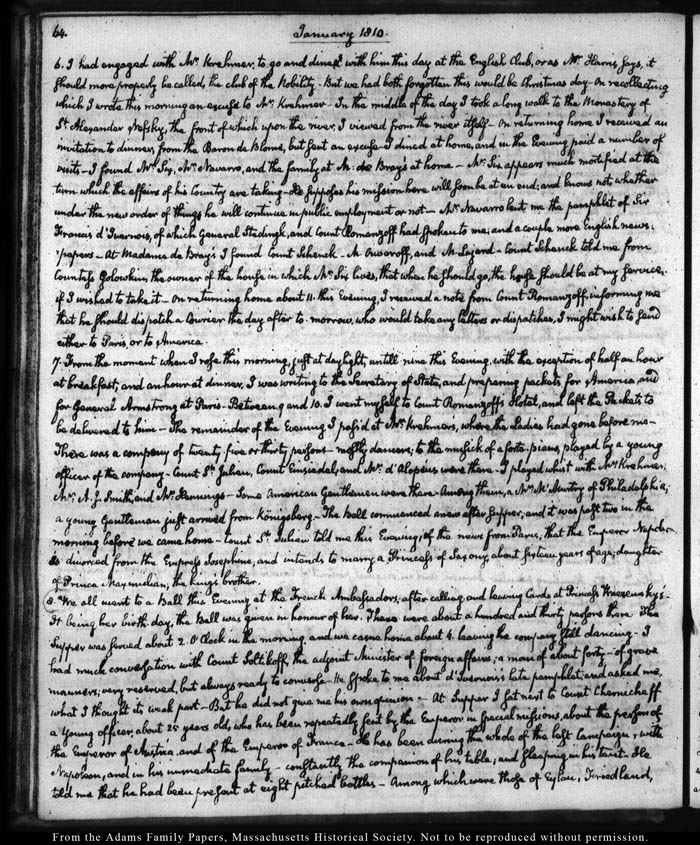 64.
January 1810.
6. I had engaged with Mr. Krehmer, to go and dine with him this day at the English Club, or as Mr. Harris says, it
should more properly be called, the club of the Nobility - But we had both forgotten this would be Christmas day - On recollecting
which I wrote this morning an excuse to Mr. Krehmer - In the middle of the day I took a long walk to the Monastery of
St. Alexander Nefsky, the front of which upon the river, I viewed from the river itself - On returning home I received an
invitation to dinner, from the Baron de Blome, but sent an excuse - I dined at home, and in the Evening paid a number of
visits - I found Mr. Six, Mr. Navarro, and the family at M. de Bray's at home - Mr. Six appears much mortified at the
turn which the affairs of his Country are taking - He supposes his mission here will soon be at an end; and knows not whether
under the new order of things he will continue in public employment or not - Mr. Navarro lent me the pamphlet of Sir
Francis d'Ivernois, of which General Stedingk, and Count Romanzoff had spoken to me; and a couple more English news-
papers - At Madame de Bray's I found Count Schenck - M. Ouvaroff, and M. Lizard - Count Schenck told me from
Countess Golowkin, the owner of the house in which Mr. Six lives, that when he should go, the house should be at my service,
if I wished to take it - On returning home about 11. this Evening, I received a note from Count Romanzoff, informing me
that he should dispatch a Courier the day after to-morrow, who would take any letters or dispatches, I might wish to send
either to Paris, or to America.
7. From the moment when I rose this morning, just at daylight, untill nine this Evening, with the exception of half an hour
at breakfast, and an hour at dinner, I was writing to the Secretary of State, and preparing packets for America, and
for General Armstrong at Paris - Between 9 and 10. I went myself to Count Romanzoff's Hotel, and left the Packets to
be delivered to him - The remainder of the Evening I pass'd at Mr. Krehmer's, where the Ladies had gone before me -
There was a company of twenty five or thirty persons - mostly dancers; to the musick of a forte-piano, played by a young
officer of the company - Count St. Julien, Count Einsiedel, and Mr. d'Alopeus were there - I played whist with Mrs. Krehmer,
Mr. N. J. Smith, and Mr. Jennings - Some American Gentlemen were there - Among them, a Mr. McMurtry of Philadelphia,
a young Gentleman just arrived from Königsberg - The Ball commenced anew after supper; and it was past two in the
morning before we came home - Count St. Julien told me this Evening, of the news from Paris, that the Emperor Napoleon
is divorced from the Empress Josephine, and intends to marry a Princess of Saxony, about sixteen years of age; daughter
of Prince Maximilian, the king's brother.
8. We all went to a Ball this Evening at the French Ambassadors, after calling, and leaving Cards at Princess Wiazemsky's -
It being her birth day, the Ball was given in honour of her. There were about a hundred and thirty persons there. The
supper was served about 2. O'Clock in the morning, and we came home about 4. leaving the company still dancing - I
had much conversation with Count Soltikoff, the adjoint Minister of foreign affairs; a man of about forty - of grave
manners, very reserved, but always ready to converse - He spoke to me about d'Ivernois's late pamphlet, and asked me,
what I thought its weak part - But he did not give me his own opinion - At Supper I sat next to Count Chernicheff
a Young officer, about 25 years old, who has been repeatedly sent by the Emperor in special missions, about the person of
the Emperor of Austria, and of the Emperor of France - He has been during the whole of the last Campaign, with
Napoleon, and in his immediate family - constantly the companion of his table; and sleeping in his tent. He
told me that he had been present at eight pitched battles - Among which were those of Eylau, Friedland,
From the Adams Family Papers, Massachusetts Historical Society. Not to be reproduced without permission.